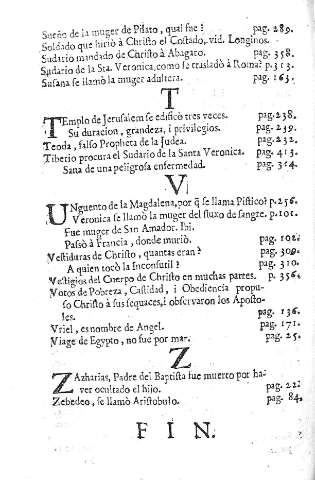 Sueño de la muger de Pilato, qual fue? pag. 289.
Soldado que hiriò à Christo el Costado, vid. Longinos.
Sudario mandado de Christo à Abagaro. pag. 358.
Sudario de la Sta. Veronica, como se trasladò à Roma? p.313.
Susana se llamò la muger adultera. pag. 163.
T
TEmplo de Jerusalem se edificò tres veces. pag. 238.
Su duracion, grandeza, i privilegios. pag. 239.
Teoda, falso Propheta de la Judea. pag. 232.
Tiberio procura el Sudario de la Santa Veronica. pag. 413.
Sana de una peligrosa enfermedad. pag. 314.
V
UNguento de la Magdalena, por q̃ se llama Pistico? p.256.
Veronica se llamò la muger del fluxo de sangre. p.101.
Fue muger de San Amador. Ibi.
Passò à Francia, donde muriò. pag. 102.
Vestiduras de Christo, quantas eran? pag. 309.
A quien tocò la Inconsutil? pag. 310.
Vestigios del Cuerpo de Christo en muchas partes. p. 356.
Votos de Pobreza, Castidad, i Obediencia propu-
so Christo à sus sequaces, i observaron los Aposto-
les. pag. 136.
Vriel, es nombre de Angel. pag. 171.
Viage de Egypto, no fue por mar. pag. 25.
Z
ZAzharias, Padre del Baptista fue muerto por ha-
ver ocultado el hijo. pag. 22.
Zebedeo, se llamò Aristobulo. pag. 84.
FIN.